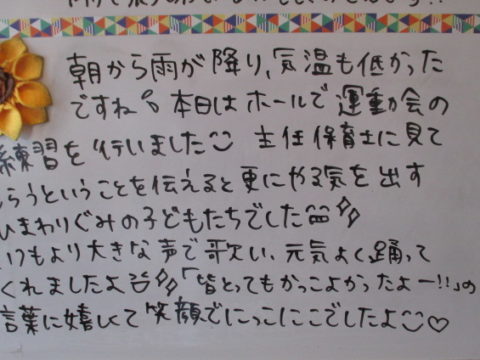 朝から雨が降り、気温も低かった
ですね 本日はホールで運動会の
練習を行いました 主任保育士に見て
らうということを伝えると更にやる気を出す
ひまわりぐみの子どもたちでした
いつもより大きな声で歌い、元気よく踊って
くれましたよ 「皆とってもかっこよかったよー!!」の
言葉に嬉しくて笑顔でにっこにこでしたよ♡